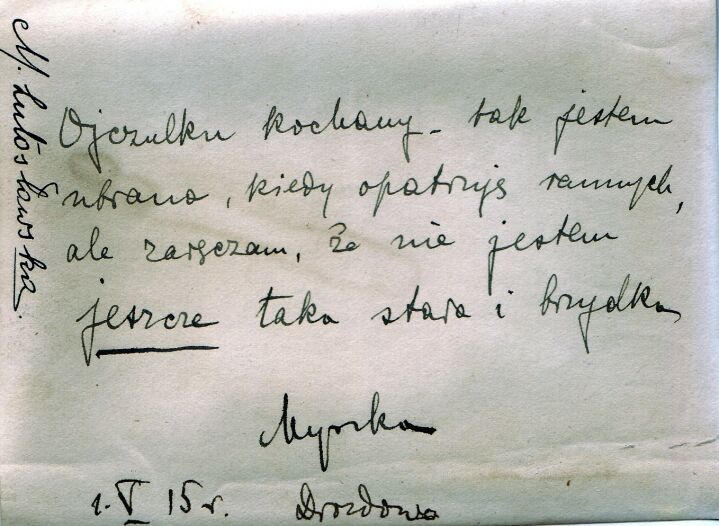 Ojczulku kochany – tak jestem
ubrana, kiedy opatruję rannych,
ale zaręczam, że nie jestem
jeszcze taka stara i brzydka
Myszka
1.V 15 r. Drozdowo
M. Lutosławska.